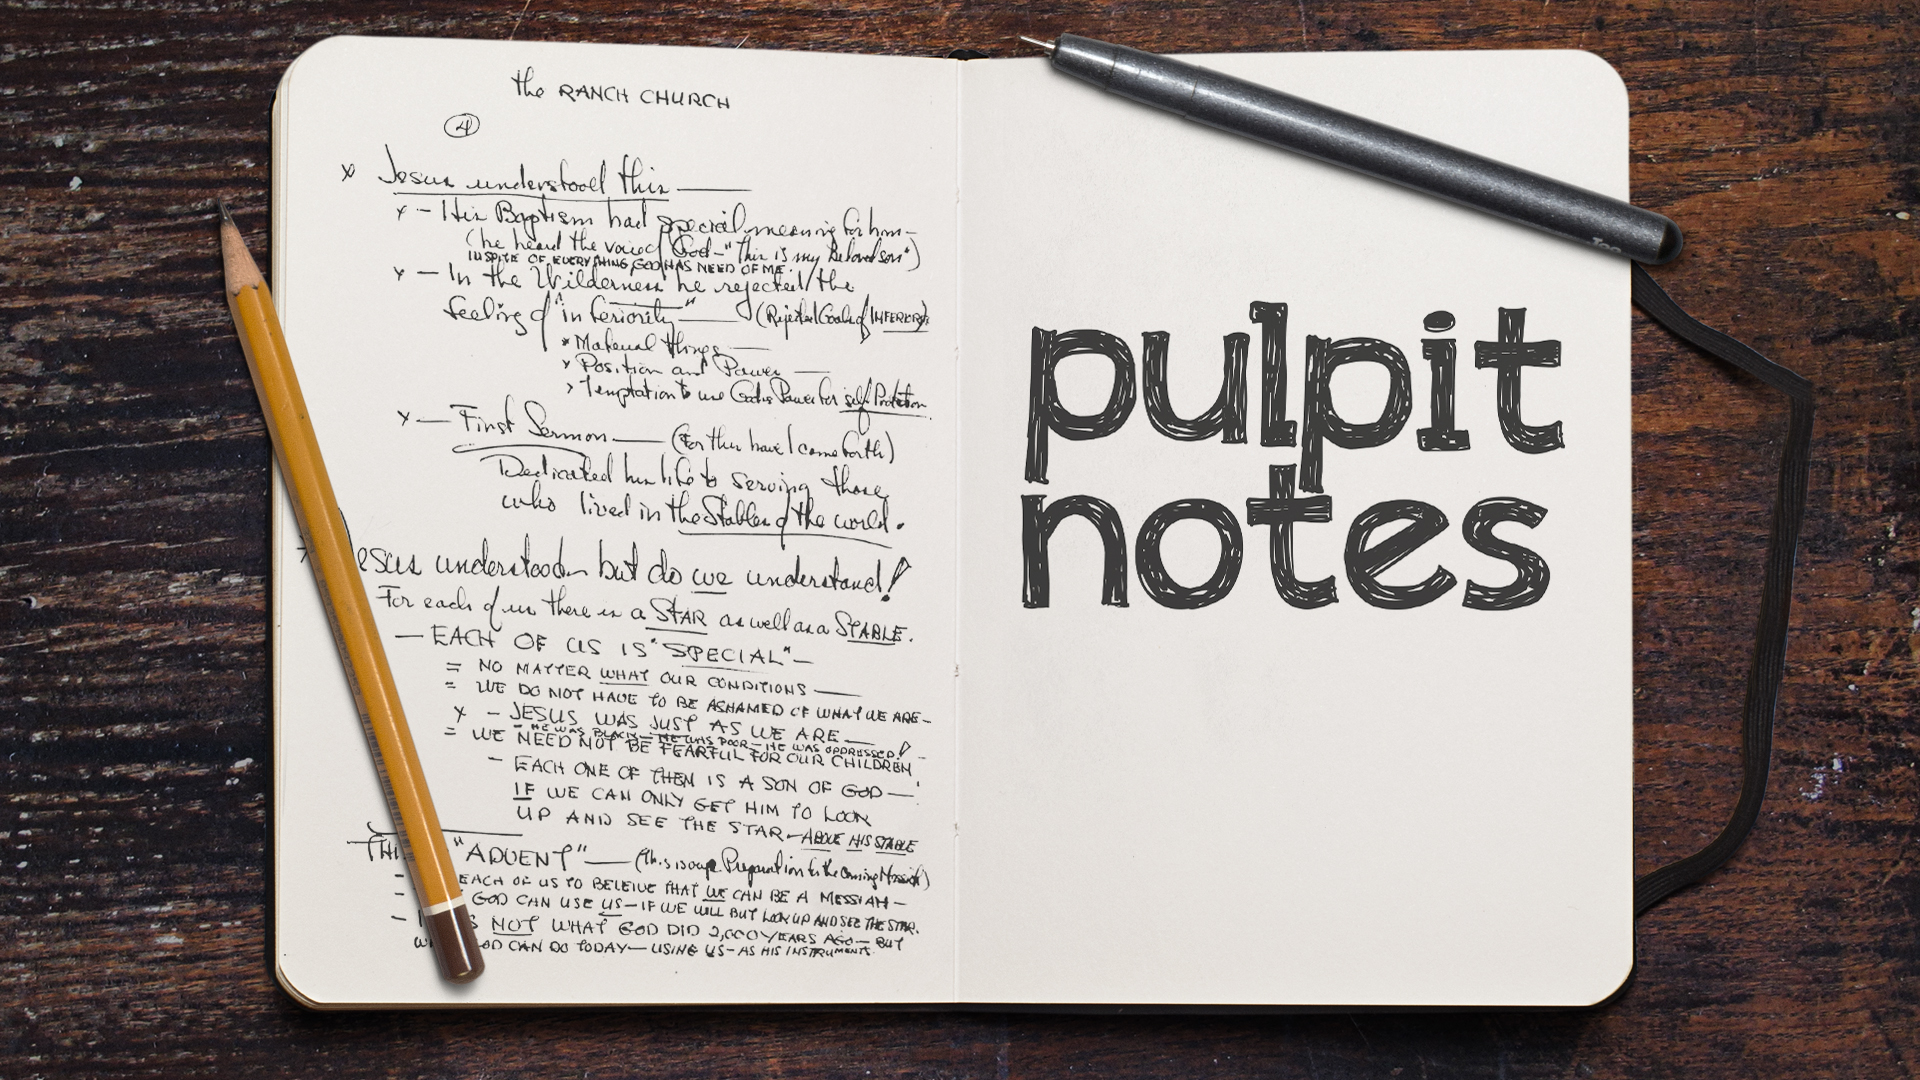 the RANCH CHURCH
4
x Jesus understood this —
x - His Baptism had special meaning for him -
(he heard the voice of God - "This is my Beloved son")
INSPITE OF EVERYTHING GOD HAS NEED OF ME.
x - In the Wilderness he rejected the
feeling of "inferiority" — (Rejected Goals of INFERIORITY)
x Material things —
x Position and Power —
x Temptation to use God's Power for self Protection
x — First Sermon — (For this have I come forth)
Dedicated his life to serving those
who lived in the Stables of the world.
esus understood - but do we understand!
For each of us there is a STAR as well as a STABLE.
— EACH OF US IS "SPECIAL" —
= NO MATTER WHAT OUR CONDITIONS —
= WE DO NOT HAVE TO BE ASHAMED OF WHAT WE ARE -
x - JESUS WAS JUST AS WE ARE —
- HE WAS BLACK - HE WAS POOR - HE WAS OPPRESSED!
= WE NEED NOT BE FEARFUL FOR OUR CHILDREN
- EACH ONE OF THEM IS A SON OF GOD —
IF WE CAN ONLY GET HIM TO LOOK
UP AND SEE THE STAR - ABOVE HIS STABLE
THI "ADVENT" — (This is our Preparation for the Coming Messiah)
- EACH OF US TO BELEIVE THAT WE CAN BE A MESSIAH -
- GOD CAN USE US - IF WE WILL BUT LOOK UP AND SEE THE STAR.
- NOT WHAT GOD DID 2,000 YEARS AGO - BUT
OD CAN DO TODAY - USING US - AS HIS INSTRUMENTS.
pulpit
notes